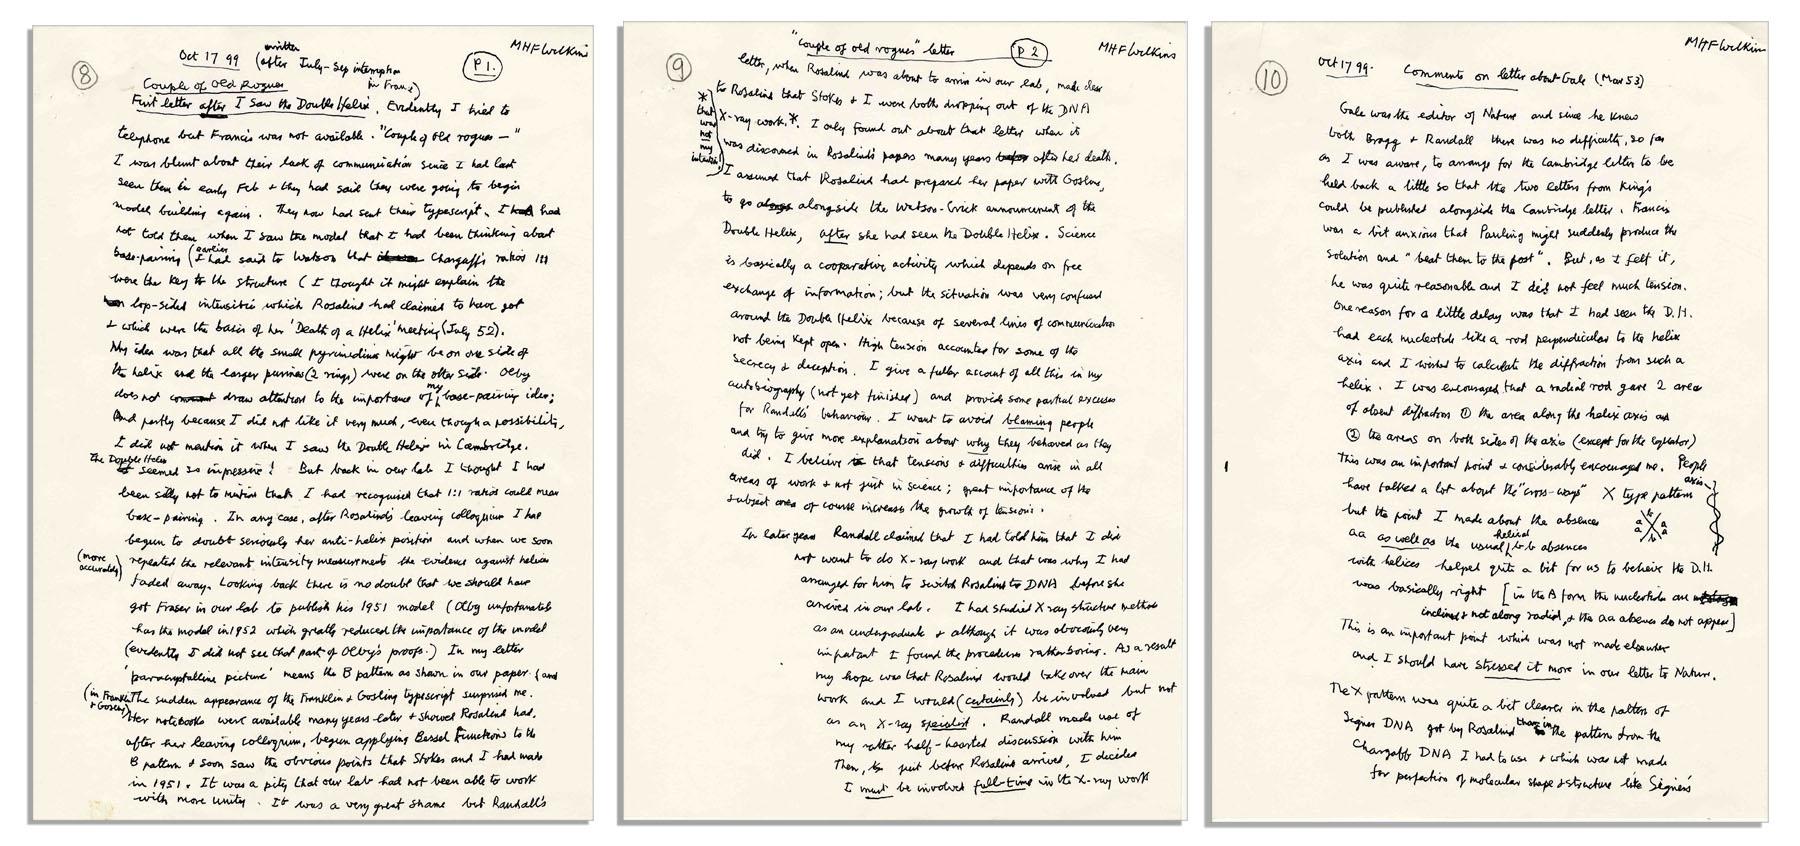 8
Oct 17 99 (written after July-Sep interruption in France)
P1.
MHFWilkins
Couple of Old Rogues
First letter after I saw the Double Helix. Evidently I tried to
telephone but Francis was not available. "Couple of old rogues — "
I was blunt about their lack of communication since I had last
seen them in early Feb & they had said they were going to begin
model building again. They now had sent their typescript. I had
not told them when I saw the model that I had been thinking about
base-pairing (I had earlier said to Watson that Chargaff's ratios 1:1
were the key to the structure (I thought it might explain the
lop-sided intensities which Rosalind had claimed to have got
& which were the basis of her 'Death of a Helix' meeting (July 52).
My idea was that all the small pyrimidines might be on one side of
the helix and the larger purines (2 rings) were on the other side. Olby
does not draw attention to the importance of my base-pairing idea;
And partly because I did not like it very much, even though a possibility,
I did not mention it when I saw the Double Helix in Cambridge.
The Double Helix seemed so impressive! But back in our lab I thought I had
been silly not to mention that I had recognised that 1:1 ratios could mean
base-pairing. In any case, after Rosalind's leaving colloquium I had
begun to doubt seriously her anti-helix position and when we soon
(more accurately) repeated the relevant intensity measurements the evidence against helices
faded away. Looking back there is no doubt that we should have
got Fraser in our lab to publish his 1951 model (Olby unfortunately
has the model in 1952 which greatly reduced the importance of the model
(evidently I did not see that part of Olby's proofs.) In my letter
'paracrystalline picture' means the B pattern as shown in our paper (and
(in Franklin & Gosling) The sudden appearance of the Franklin & Gosling typescript surprised me.
Her notebooks were available many years later & showed Rosalind had,
after her leaving colloquium, begun applying Bessel Functions to the
B pattern & soon saw the obvious points that Stokes and I had made
in 1951. It was a pity that our lab had not been able to work
with more unity. It was a very great shame but Randall's
9
"Couple of old rogues" letter
P 2
MHFWilkins
letter, when Rosalind was about to arrive in our lab, made clear
to Rosalind that Stokes & I were both dropping out of the DNA
X-ray work.* I only found out about that letter when it
* that was not my intention
was discovered in Rosalind's papers many years after her death.
I assumed that Rosalind had prepared her paper with Gosling,
to go alongside the Watson-Crick announcement of the
Double Helix, after she had seen the Double Helix. Science
is basically a cooperative activity which depends on free
exchange of information; but the situation was very confused
around the Double Helix because of several lines of communication
not being kept open. High tension accounted for some of the
secrecy & deception. I give a fuller account of all this in my
autobiography (not yet finished) and provide some partial excuses
for Randall's behaviour. I want to avoid blaming people
and try to give more explanation about why they behaved as they
did. I believe that tensions & difficulties arise in all
areas of work & not just in science; great importance of the
subject area of course increases the growth of tensions.
In later years Randall claimed that I had told him that I did
not want to do X-ray work and that was why I had
arranged for him to switch Rosalind to DNA before she
arrived in our lab. I had studied X ray structure methods
as an undergraduate & although it was obviously very
important I found the procedures rather boring. As a result
my hope was that Rosalind would take over the main
work and I would (certainly) be involved but not
as an X-ray specialist. Randall made use of
my rather half-hearted discussion with him
Then, just before Rosalind arrived, I decided
I must be involved full-time in the X-ray work
10
Oct 17 99.
MHFWilkins
Comments on letter about Gale (Mar 53)
Gale was the editor of Nature and since he knew
both Bragg & Randall there was no difficulty, so far
as I was aware, to arrange for the Cambridge letter to be
held back a little so that the two letters from King's
could be published alongside the Cambridge letter. Francis
was a bit anxious that Pauling might suddenly produce the
solution and "beat them to the post". But, as I felt it,
he was quite reasonable and I did not feel much tension.
One reason for a little delay was that I had seen the D.H.
had each nucleotide like a rod perpendicular to the helix
axis and I wished to calculate the diffraction from such a
helix. I was encouraged that a radial rod gave 2 areas
of absent diffraction ① the area along the helix axis and
② the areas on both sides of the axis (except for the equator)
This was an important point & considerably encouraged me. People
have talked a lot about the "cross-ways" X type pattern
axis
but the point I made about the absences
b
a a
a a
b
aa as well as the usual helical bb absences
with helices helped quite a bit for us to believe the D.H.
was basically right [in the A form the nucleotides are
inclined & not along radial, & the aa absences do not appear]
This is an important point which was not made elsewhere
and I should have stressed it more in our letter to Nature.
The X pattern was quite a bit clearer in the pattern of
Signer DNA got by Rosalind than in the pattern from the
Chargaff DNA I had to use & which was not made
for perfection of molecular shape & structure like Signer's